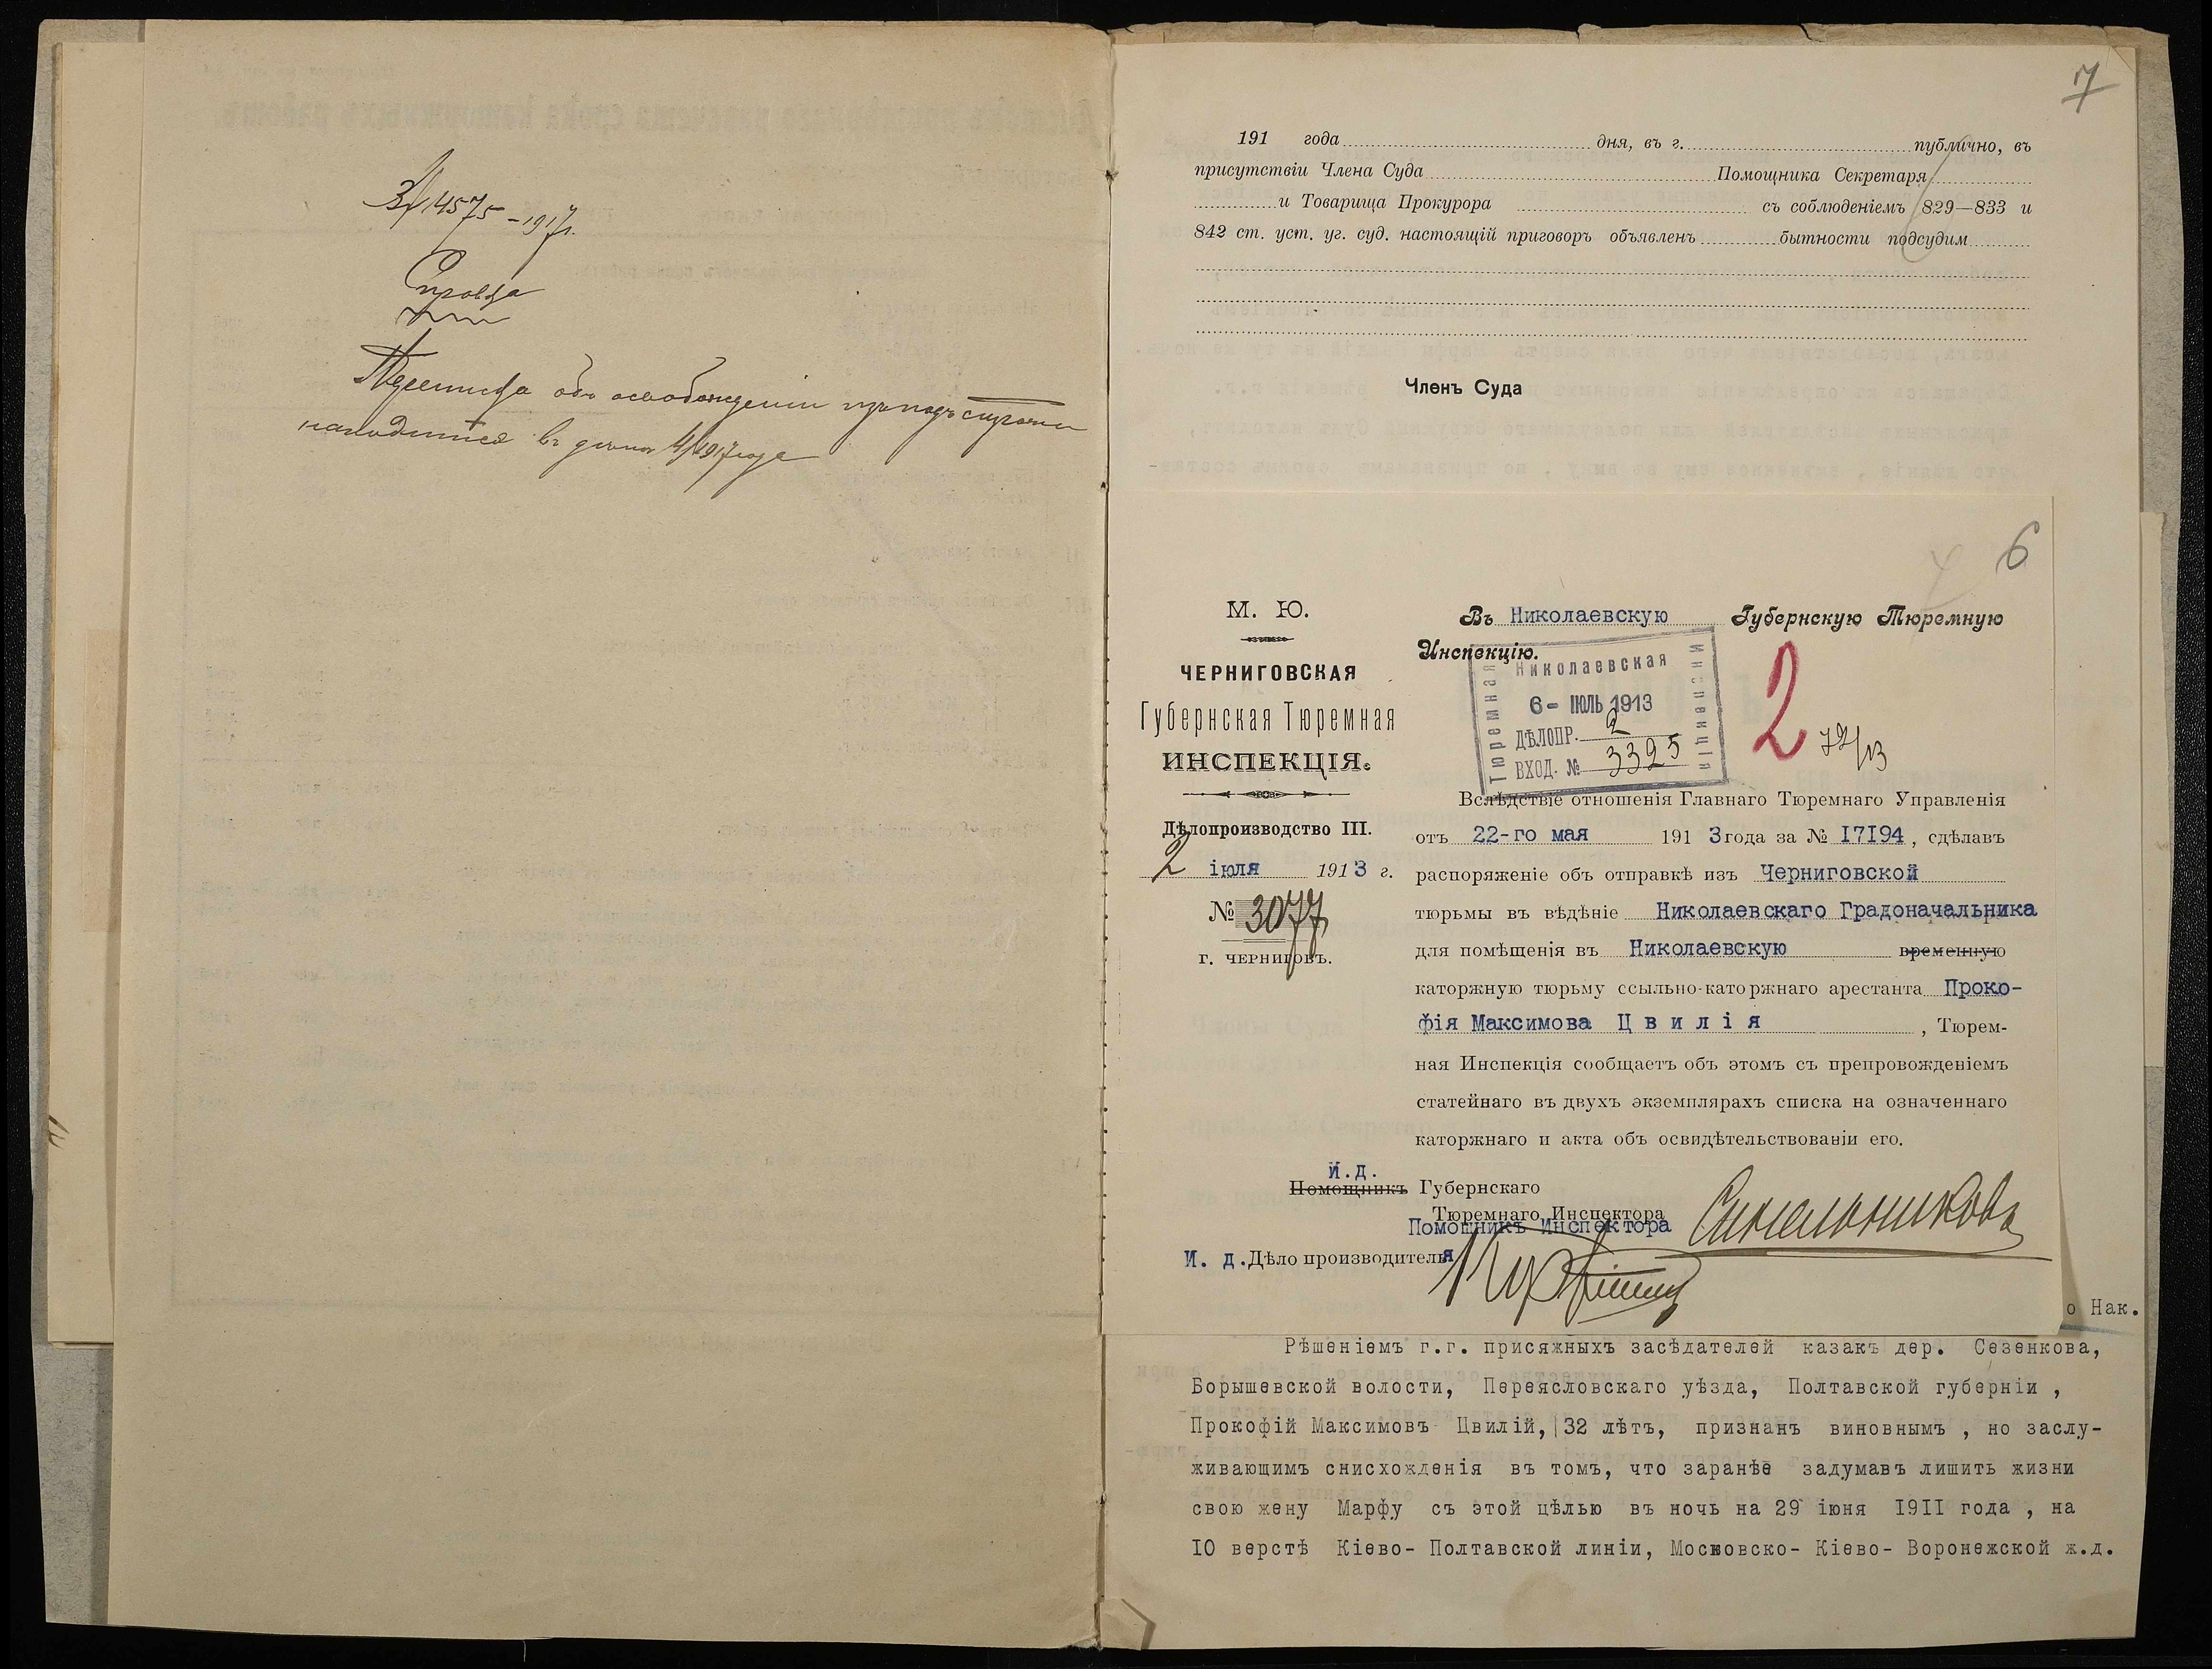 14575-1917г.
Справка
Переписка объ освобожденіи изъ подъ стражи
находится въ дѣлѣ 4/1917 года
7
191 года дня, въ г. публично, въ
присутствіи Члена Суда Помощника Секретаря
и Товарища Прокурора съ соблюденіемъ 829—833 и
842 ст. уст. уг. суд. настоящій приговоръ объявленъ бытности подсудим
Членъ Суда
6
М. Ю.
ЧЕРНИГОВСКАЯ
Губернская Тюремная
ИНСПЕКЦІЯ.
Дѣлопроизводство III.
2 іюля 1913 г.
№ 3077
г. ЧЕРНИГОВЪ.
Въ Николаевскую Губернскую Тюремную
Инспекцію.
Николаевская
Тюремная
Инспекція
6- ІЮЛЬ 1913
ДѢЛОПР. 2
ВХОД. № 3395
2
72/13
Вслѣдствіе отношенія Главнаго Тюремнаго Управленія
отъ 22-го мая 1913 года за № I7I94, сдѣлавъ
распоряженіе объ отправкѣ изъ Черниговской
тюрьмы въ вѣдѣніе Николаевскаго Градоначальника
для помѣщенія въ Николаевскую временную
каторжную тюрьму ссыльно-каторжнаго арестанта Проко-
фія Максимова Цвилія, Тюрем-
ная Инспекція сообщаетъ объ этомъ съ препровожденіемъ
статейнаго въ двухъ экземплярахъ списка на означеннаго
каторжнаго и акта объ освидѣтельствованіи его.
И.д.
Помощникъ Губернскаго
Тюремнаго Инспектора
Помощникъ Инспектора Синельниковъ
И. д. Дѣлопроизводителя
о Нак.
Рѣшеніемъ г.г. присяжныхъ засѣдателей казакъ дер. Сезенкова,
Борышевской волости, Переясловскаго уѣзда, Полтавской губерніи ,
Прокофій Максимовъ Цвилій, 32 лѣтъ, признанъ виновнымъ , но заслу-
живающимъ снисхожденія въ томъ, что заранѣе задумавъ лишить жизни
свою жену Марфу съ этой цѣлью въ ночь на 29 іюня I9II года , на
I0 верстѣ Кіево- Полтавской линіи, Московско- Кіево- Воронежской ж.д.